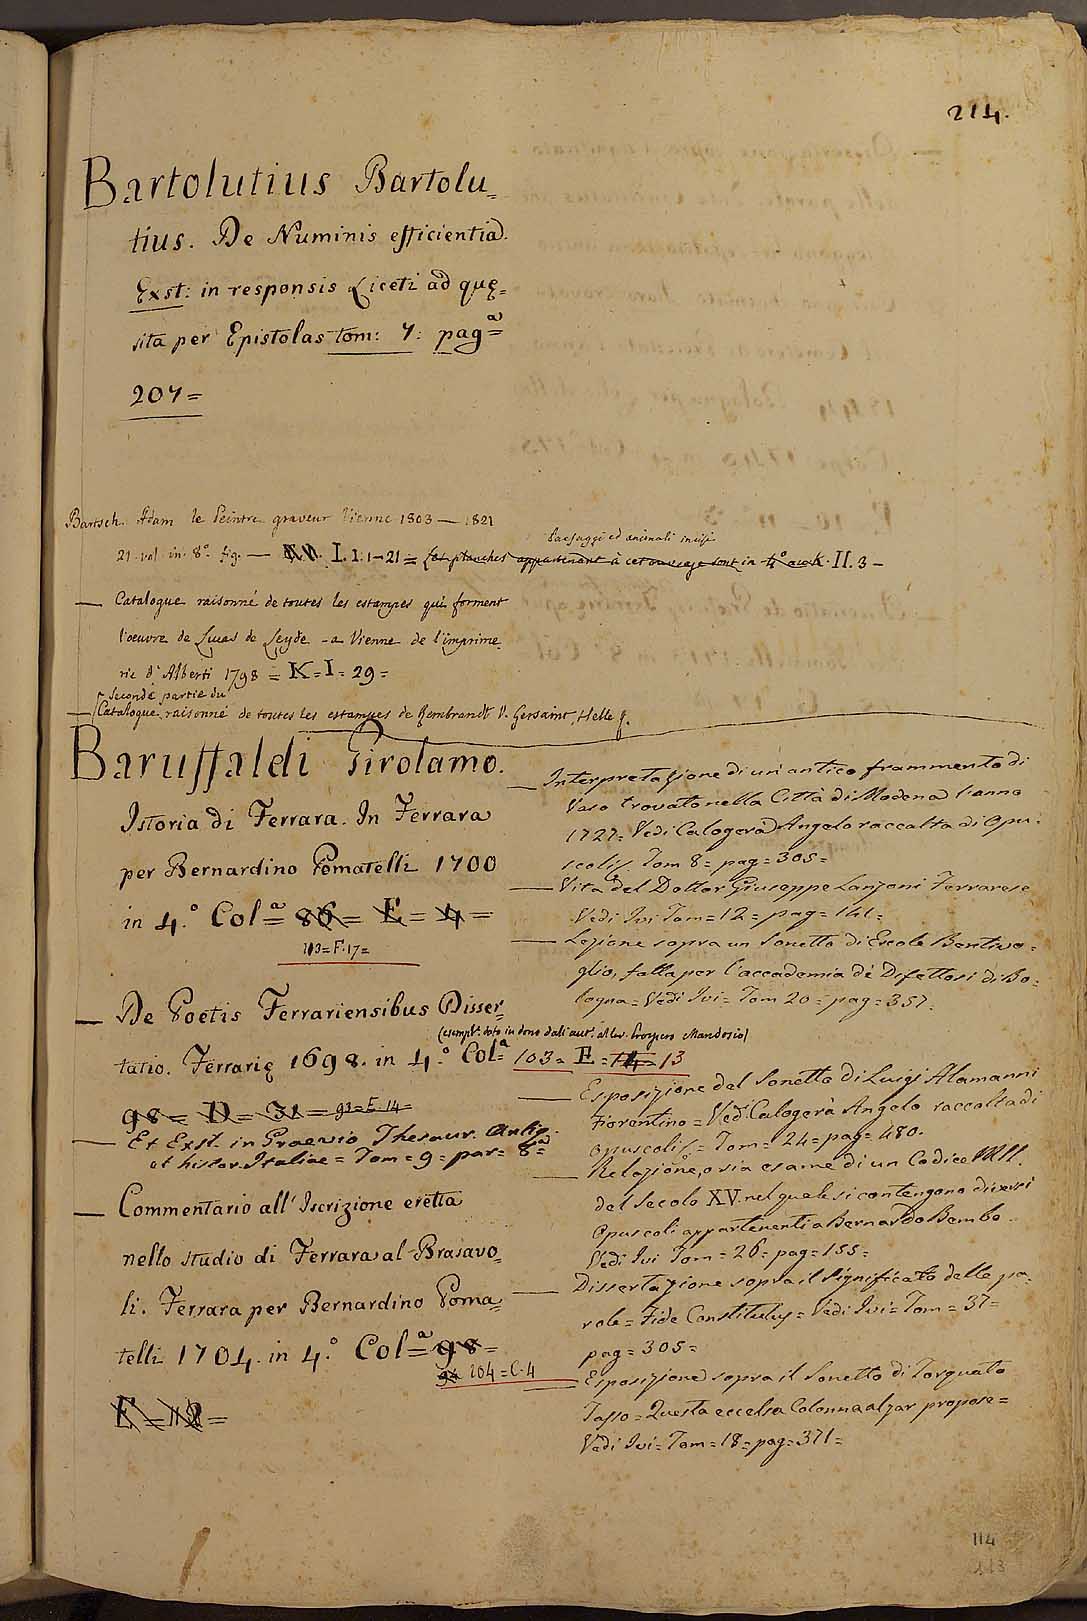 214.
Bartolutius Bartolu=
tius. De Numinis efficientia.
Exst: in responsis Liceti ad quę=
sita per Epistolas tom: 7: pagª=
207=
Bartsch. Adam le Peintre graveur Vienne 1803 — 1821
21. vol. in. 8º fig. — I. 1. 1-21 = Les planches appartenant à cet ouvrage sont in 4º K. II. 3 –
Paesaggi ed animali incisi
— Catalogue raisonné de toutes les estampes qui forment
l'oeuvre de Lucas de Leyde - a Vienne de l'imprime
rie d'Alberti 1798 = K=I= 29=
Seconde partie du
— Catalogue raisonné de toutes les estampes de Rembrandt V. Gersaint, Helle &.
Baruffaldi Girolamo.
Istoria di Ferrara. In Ferrara
per Bernardino Pomatelli 1700
in 4.º Colª= 86= E= 4=
113=F.17=
— De Poetis Ferrariensibus Disser=
(esempl. doto in dono dall'aut. al Prospero Mandosio)
tatio. Ferrarię 1698. in 4.º Colª= 103= E = 14= 13
98= D= 31= 93=E.14=
— Et Exst. in Graevio Thesaur. Antiq.
et histor. Italiae= Tom= 9= par= 8ª=
— Commentario all'Iscrizione eretta
nello studio di Ferrara al Brasavo=
li. Ferrara per Bernardino Poma=
telli 1704. in 4.º Colª= 98=
94 104=C.4
E=12=
— Interpretazione di un'antico frammento di
Vaso trovato nella Città di Modena l'anno
1727= Vedi Calogerà Angelo raccolta di Opu=
scoli. Tom 8= pag= 305=
— Vita del Dottor Giuseppe Lanzoni Ferrarese
Vedi Ivi Tom= 12= pag= 141=
— Lezione sopra un Sonetto di Ercole Bentivo=
glio, fatta per l'accademia dè Difettosi di Bo=
logna= Vedi Ivi= Tom 20= pag= 357.
— Esposizione del Sonetto di Luigi Alamanni
Fiorentino= Vedi Calogerà Angelo raccolta di
opuscoli= Tom= 24= pag= 480.
— Relazione, o sia esame di un Codice MSS.
del Secolo XV. nel quale si contengono diversi
Opuscoli appartenenti a Bernardo Bembo.
Vedi Ivi Tom= 26= pag= 155=
— Dissertazione sopra il significato delle pa=
role= Fide Constitutus= Vedi Ivi= Tom= 37=
pag= 305=
— Esposizione sopra il Sonetto di Torquato
Tasso= Questa eccelsa Colonna alzar propose=
Vedi Ivi= Tom= 18= pag= 371=
114
113